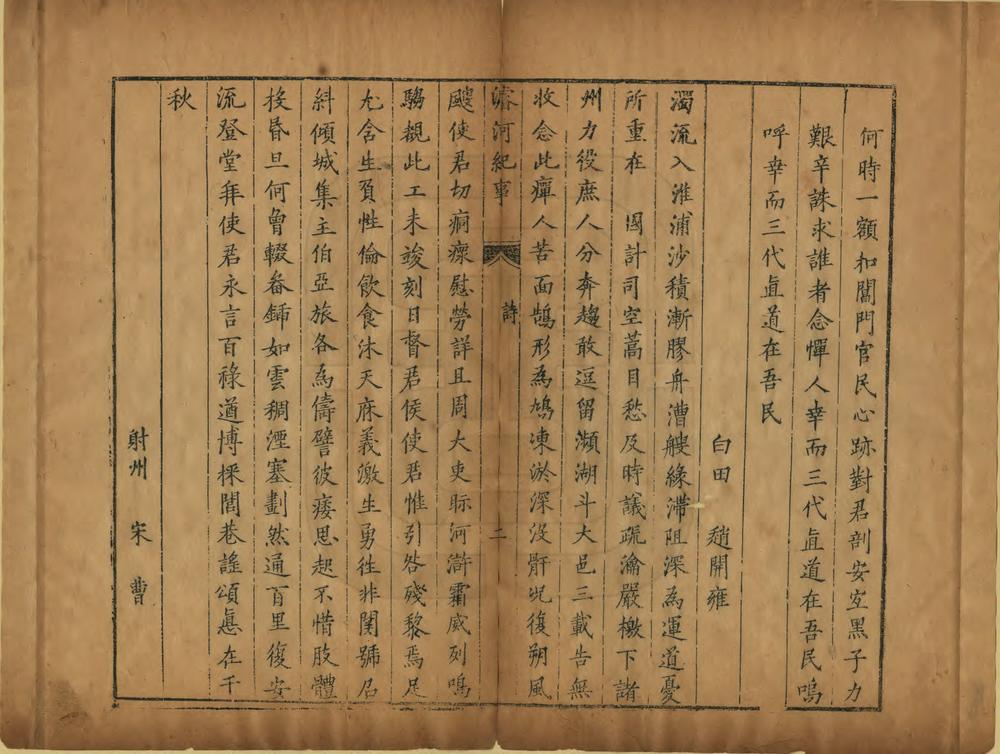 何時一額和閶門官民心跡對君剖安宜黑子力
艱辛誅求誰者念憚人幸而三代直道在吾民嗚
呼幸而三代直道在吾民
白田 趙開雍
濁流入淮浦沙積漸膠舟漕艘緣滯阻深為運道憂
所重在 國計司空蒿目愁及時議疏瀹嚴檄下諸
州力役庶人分奔趨敢逗留瀕湖斗大邑三載告無
收念此癉人苦面鵠形為鳩凍淤深沒骭況復朔風
濬河紀事 詩 二
颼使君切痌瘝慰勞詳且周大吏眎河滸霜威列鳴
騶觀此工未竣刻日督君侯使君惟引咎殘黎焉足
尤含生負性倫飲食沐天庥義激生勇往非關號召
糾傾城集主伯亞旅各為儔譬彼痿思起不惜股體
捘昏旦何曾輟畚鍤如雲稠湮塞劃然通百里復安
流登堂拜使君永言百祿遒博採閭巷謠頌悳在千
秋
射州 宋 曹